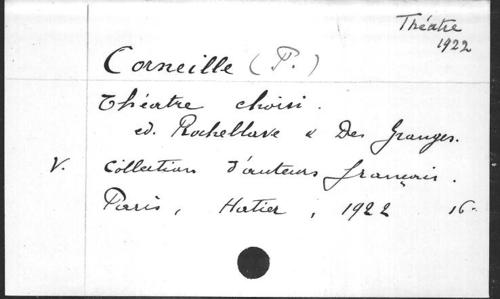 Théatre
1922
Corneille (P.)
Théatre choisi.
ed. Rochellave & Des Granges.
V. Collection d'auteurs français.
Paris, Hatier, 1922 16-